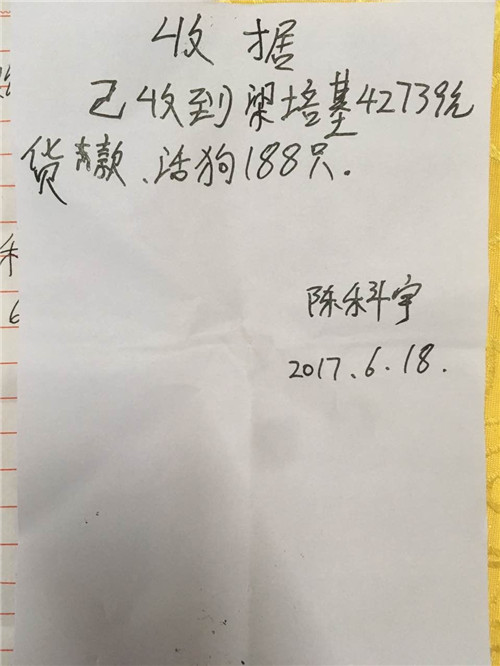 收据
已收到梁培基42739元
货款、活狗188只.
陈科宇
2017.6.18.